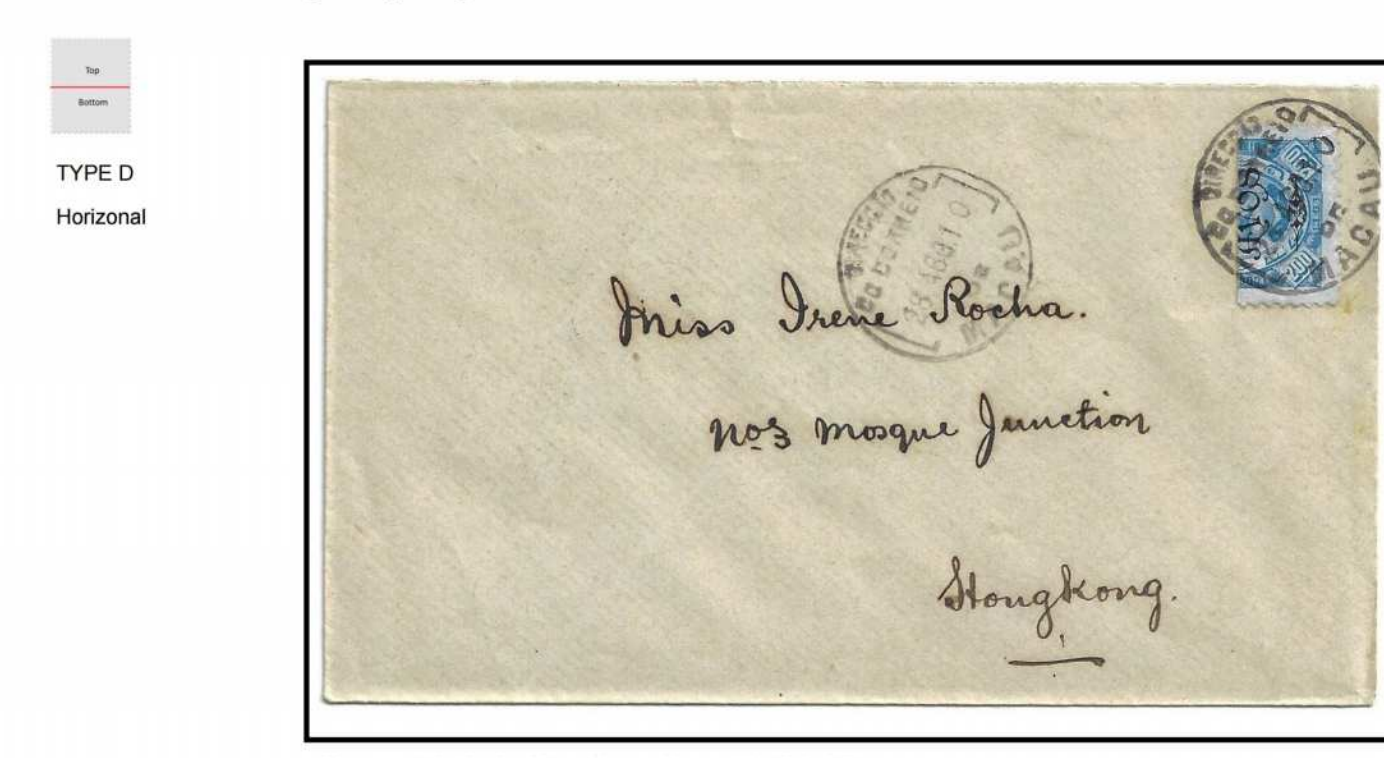 Top
Bottom
TYPE D
Horizonal
DIRECÇÃO
DO CORREIO
DE
MACAU
DIRECÇÃO
DO CORREIO
DE
MACAU
200
Miss Irene Rocha.
No 3 Mosque Junction
Hongkong.